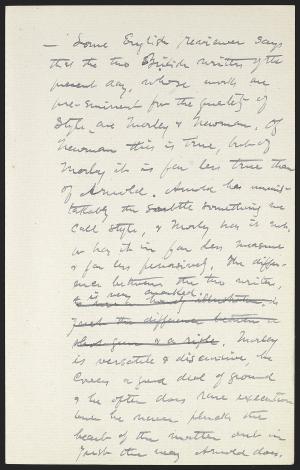 — Some English reviewer says
that the two British writers of the
present day, whose works are
pre-eminent for the quality of
style, are Morley & Newman. Of
Newman this is true, but of
Morley it is far less true than
of Arnold. Arnold has unmis-
takably the subtle something we
call style, & Morley has it not,
or has it in far less measure
& far less pervasively. The differ-
ence between the two writers,
is very marked.
is
just the difference between a
shot gun & a rifle. Morley
is versatile & discursive, he
covers a good deal of ground
& he often does rare execution
but he never plucks the
heart of the matter out in
just the way Arnold does.